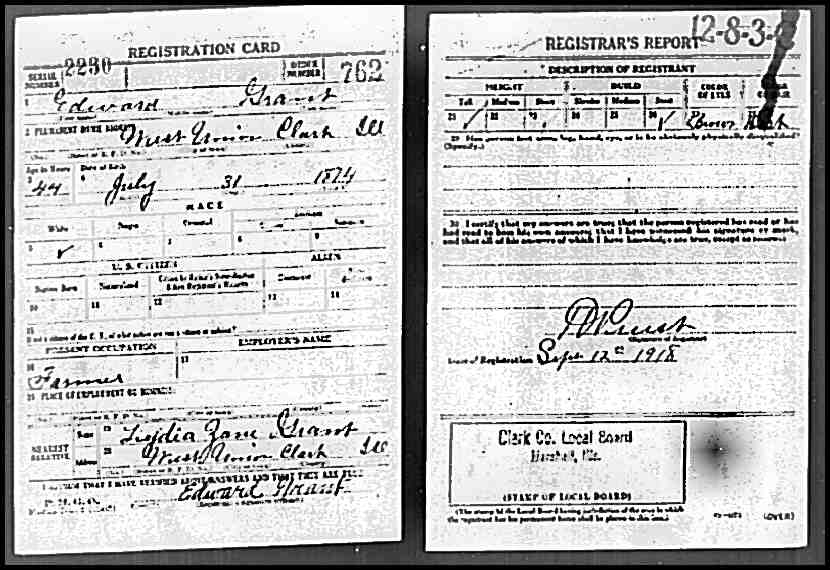 REGISTRATION CARD
SERIAL NUMBER 2230 ORDER NUMBER 762
1 Edward Grant
2 PERMANENT HOME ADDRESS West Union Clark Ill
Age in Years Date of Birth
44 July 31 1874
RACE
White Negro Oriental
U. S. CITIZEN ALIEN
10 11 12 13 14
15
If not a citizen of the U. S., of what nation are you a citizen or subject?
PRESENT OCCUPATION EMPLOYER'S NAME
16 Farmer 17
18 PLACE OF EMPLOYMENT OR BUSINESS
NEAREST RELATIVE Name 19 Lydia Zane Grant
Address 20 West Union Clark Ill
I AFFIRM THAT I HAVE VERIFIED ABOVE ANSWERS AND THAT THEY ARE TRUE
Edward Grant
12-8-3-
REGISTRAR'S REPORT
DESCRIPTION OF REGISTRANT
HEIGHT BUILD COLOR OF EYES COLOR
Tall Medium Short Slender Medium Stout
21 22 23 24 25 26 Brown
29 Has person lost arm, leg, hand, eye, or is he obviously physically disqualified?
(Specify.)
30 I certify that my answers are true; that the person registered has read or has
had read to him his own answers; that I have witnessed his signature or mark,
and that all of his answers of which I have knowledge are true, except as follows:
Signature of Registrar
Date of Registration Sept 12th 1918
Clark Co. Local Board
Marshall, Ill.
(STAMP OF LOCAL BOARD)
(The stamp of the Local Board having jurisdiction of the area in which
the registrant has his permanent home shall be placed in this box.)
(OVER)